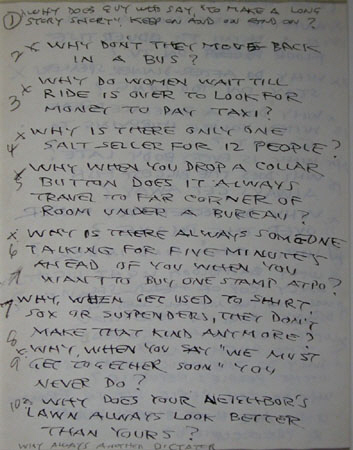 ① x WHY DOES GUY WHO SAY, "TO MAKE A LONG
STORY SHORT", KEEP ON AND ON AND ON?
2 x WHY DON'T THEY MOVE BACK
IN A BUS?
x WHY DO WOMEN WAIT TILL
3 RIDE IS OVER TO LOOK FOR
MONEY TO PAY TAXI?
x WHY IS THERE ONLY ONE
4 SALT SELLER FOR 12 PEOPLE?
x WHY WHEN YOU DROP A COLLAR
5 BUTTON DOES IT ALWAYS
TRAVEL TO FAR CORNER OF
ROOM UNDER A BUREAU?
x WHY IS THERE ALWAYS SOMEONE
6 TALKING FOR FIVE MINUTES
AHEAD OF YOU WHEN YOU
WANT TO BUY ONE STAMP AT PO?
7 WHY, WHEN GET USED TO SHIRT
SOX OR SUSPENDERS, THEY DON'T
8 MAKE THAT KIND ANYMORE?
x WHY, WHEN YOU SAY "WE MUST
9 GET TOGETHER SOON" YOU
NEVER DO?
10 WHY DOES YOUR NEIGHBOR'S
LAWN ALWAYS LOOK BETTER
THAN YOURS?
WHY ALWAYS ANOTHER DICTATOR